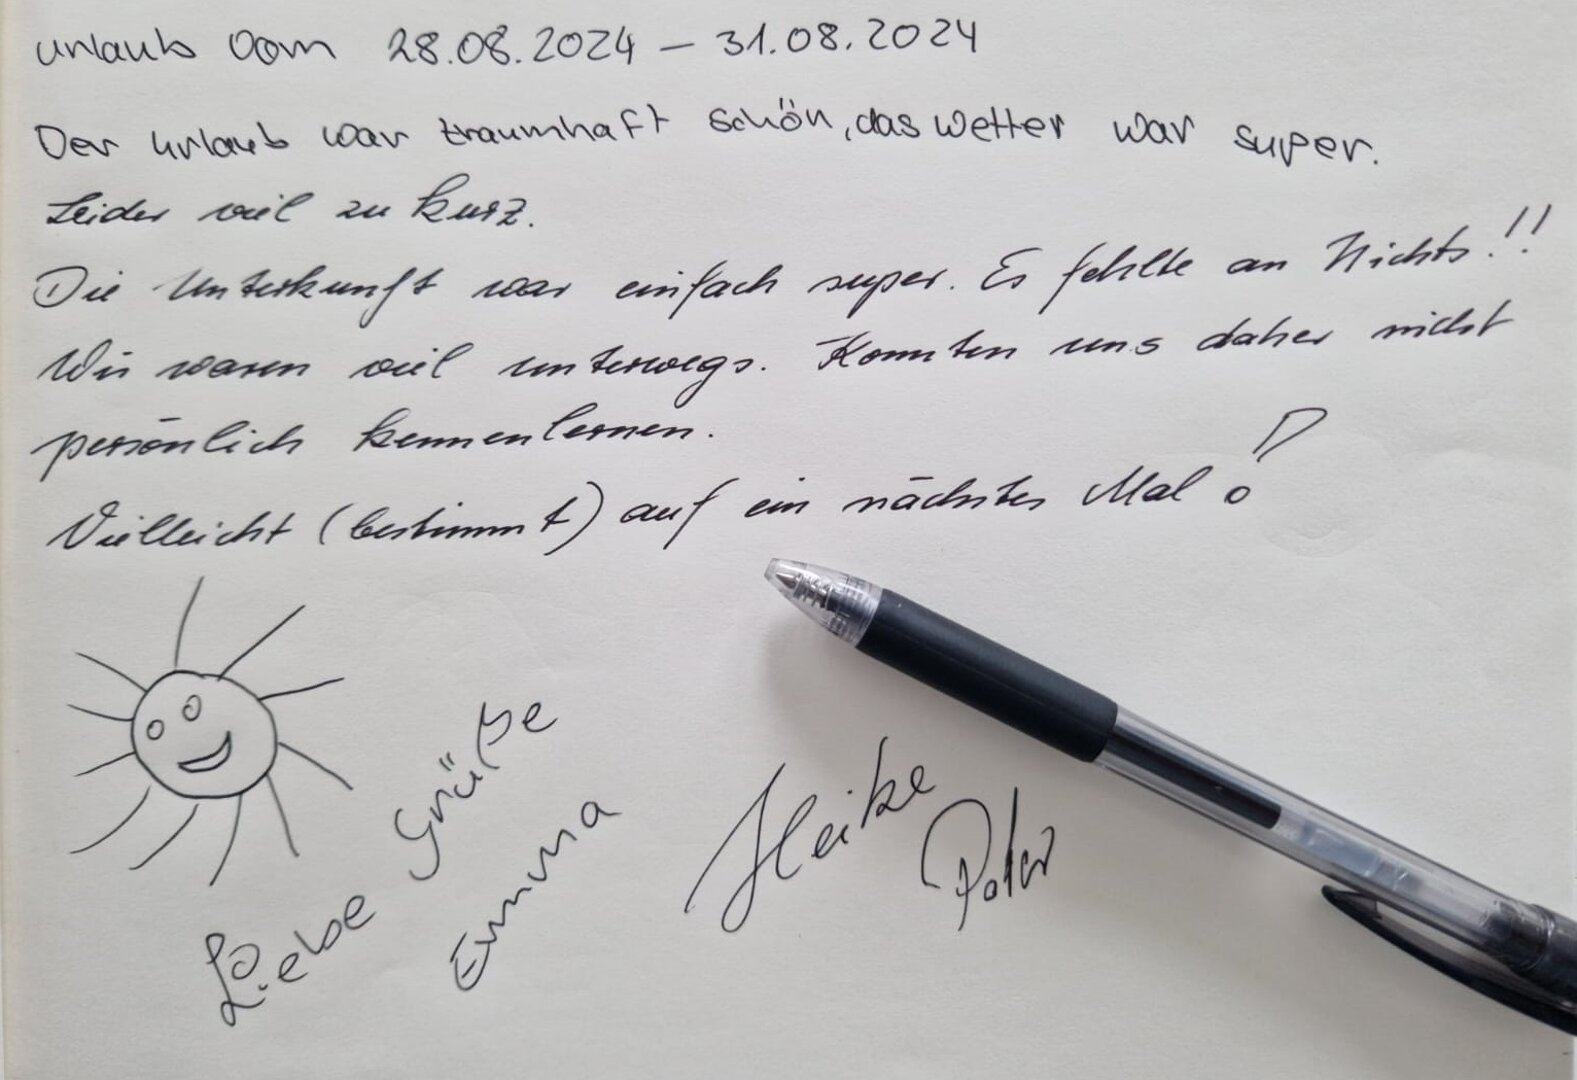 urlaub vom 28.08.2024 – 31.08.2024
Der urlaub war traumhaft schön, das Wetter war super.
Leider viel zu kurz.
Die Unterkunft war einfach super. Es fehlte an Nichts!!
Wir waren viel unterwegs. Konnten uns daher nicht
persönlich kennenlernen.
Vielleicht (bestimmt) auf ein nächstes Mal!
Liebe Grüße
Emma
Heike
Peter